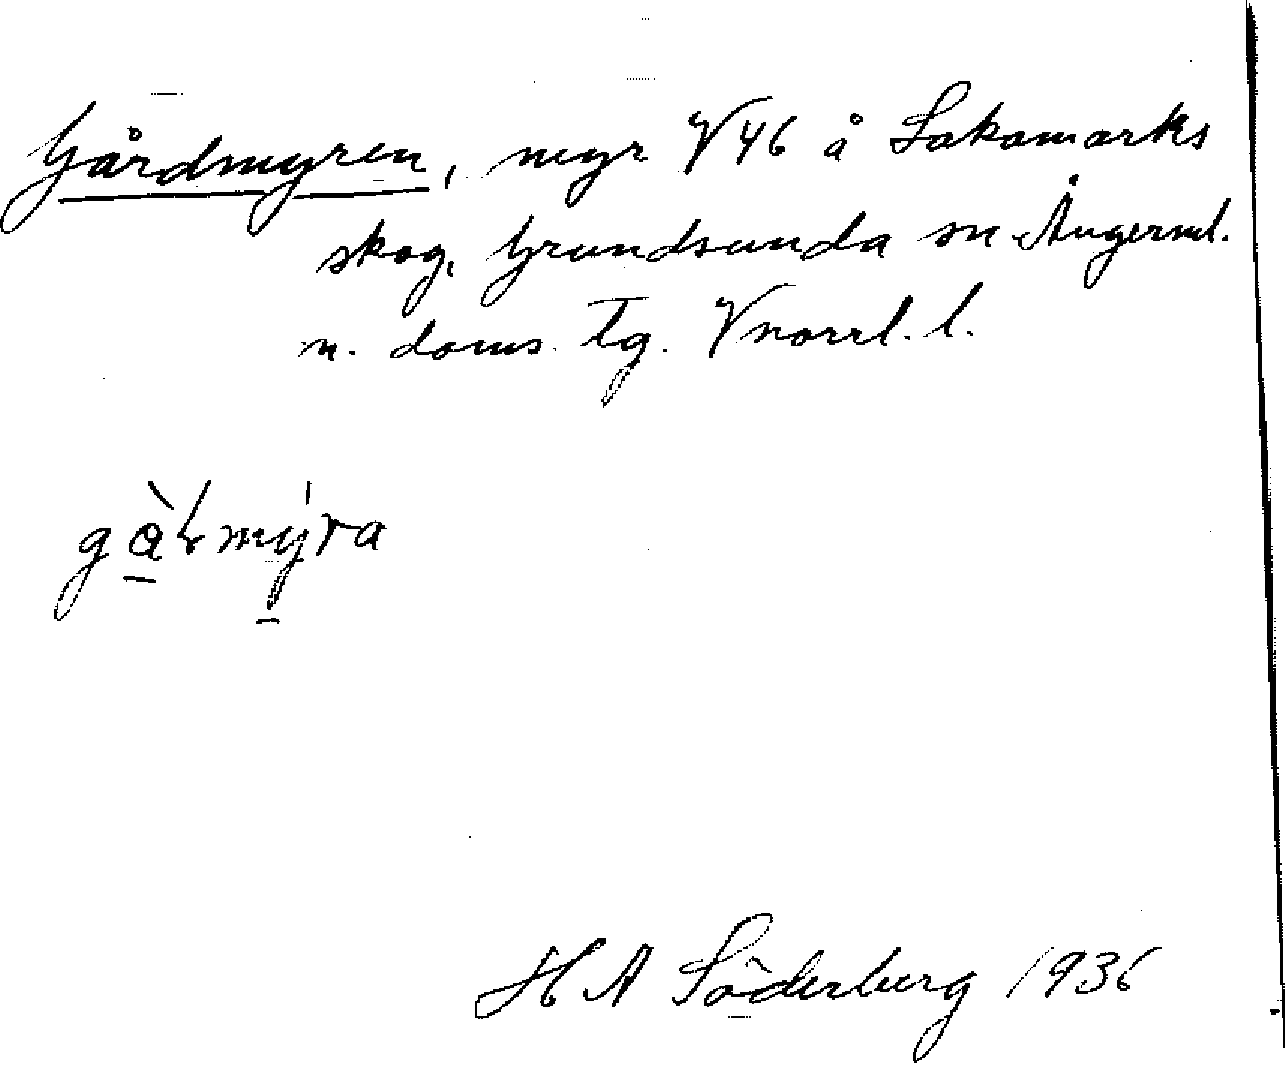 Gårdmyren, myr V46 å Sakamarks
skog, Grundsunda sn Ångerml.
n. doms. tg. Vnorrl. l.
H A Söderberg 1936